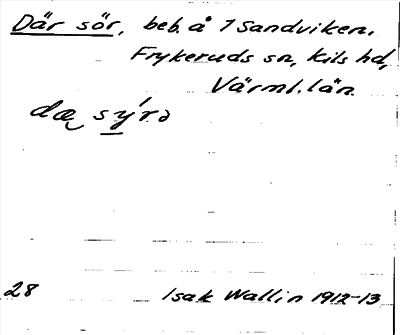 Där sör, beb. å 1 Sandviken.
Frykeruds sn, Kils hd,
Värml. län.
dæ sy´rə
28 Isak Wallin 1912-13